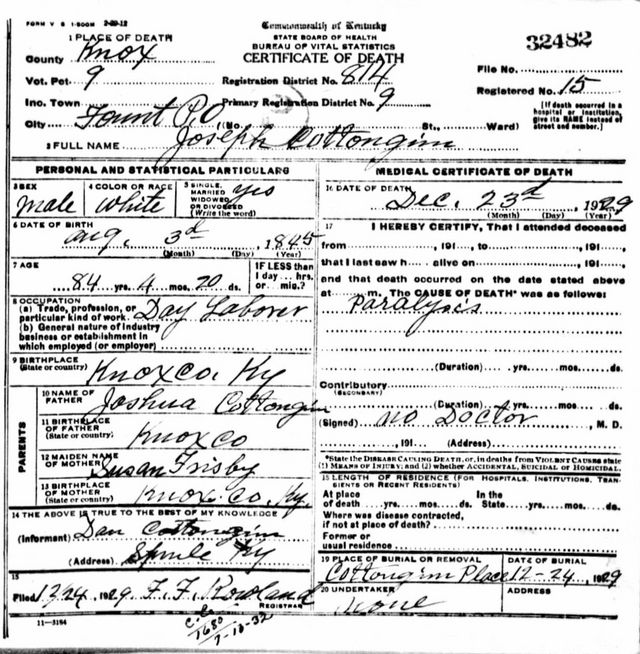 FORM V S 1-500M 2-29-12
Commonwealth of Kentucky
STATE BOARD OF HEALTH
BUREAU OF VITAL STATISTICS
CERTIFICATE OF DEATH
32482
1 PLACE OF DEATH
County Knox
Vot. Pct 9
Registration District No. 814
File No.
Inc. Town
Primary Registration District No. 9
Registered No. 15
City Fount P.O (No. St., Ward)
[If death occurred in a hospital or institution, give its NAME instead of street and number.]
2 FULL NAME Joseph Cottongim
PERSONAL AND STATISTICAL PARTICULARS
3 SEX male
4 COLOR OR RACE white
5 SINGLE, MARRIED WIDOWED OR DIVORCED (Write the word) yes
6 DATE OF BIRTH Aug, 3d, 1845
(Month) (Day) (Year)
7 AGE 84 yrs. 4 mos. 20 ds.
IF LESS than 1 day...hrs. or min.?
8 OCCUPATION
(a) Trade, profession, or particular kind of work Day Laborer
(b) General nature of industry business or establishment in which employed (or employer)
9 BIRTHPLACE
(State or country) Knox co, Ky
PARENTS
10 NAME OF FATHER Joshua Cottongim
11 BIRTHPLACE OF FATHER (State or country) Knox co
12 MAIDEN NAME OF MOTHER Susan Frisby
13 BIRTHPLACE OF MOTHER (State or country) Knox. co. Ky.
14 THE ABOVE IS TRUE TO THE BEST OF MY KNOWLEDGE
(Informant) Dan Cottongim
(Address) Ky
15
Filed 12/24, 1929 F. F. Rowland
REGISTRAR
11-3184
1680
7-13-32
MEDICAL CERTIFICATE OF DEATH
16 DATE OF DEATH Dec. 23d, 1929
(Month) (Day) (Year)
17 I HEREBY CERTIFY, That I attended deceased
from, 191, to, 191,
that I last saw h alive on, 191,
and that death occurred on the date stated above
at m. The CAUSE OF DEATH* was as follows:
Paralysis
(Duration) yrs. mos. ds.
Contributory
(SECONDARY)
(Duration) yrs. mos. ds.
(Signed) no Doctor, M. D.
, 191 (Address)
*State the DISEASE CAUSING DEATH, or, in deaths from VIOLENT CAUSES state (1) MEANS OF INJURY; and (2) whether ACCIDENTAL, SUICIDAL or HOMICIDAL.
18 LENGTH OF RESIDENCE (FOR HOSPITALS, INSTITUTIONS, TRANSIENTS OR RECENT RESIDENTS)
At place of death yrs. mos. ds. In the State yrs. mos. ds.
Where was disease contracted, if not at place of death?
Former or usual residence
19 PLACE OF BURIAL OR REMOVAL Cottongim Place
DATE OF BURIAL 12-24, 1929
20 UNDERTAKER none
ADDRESS